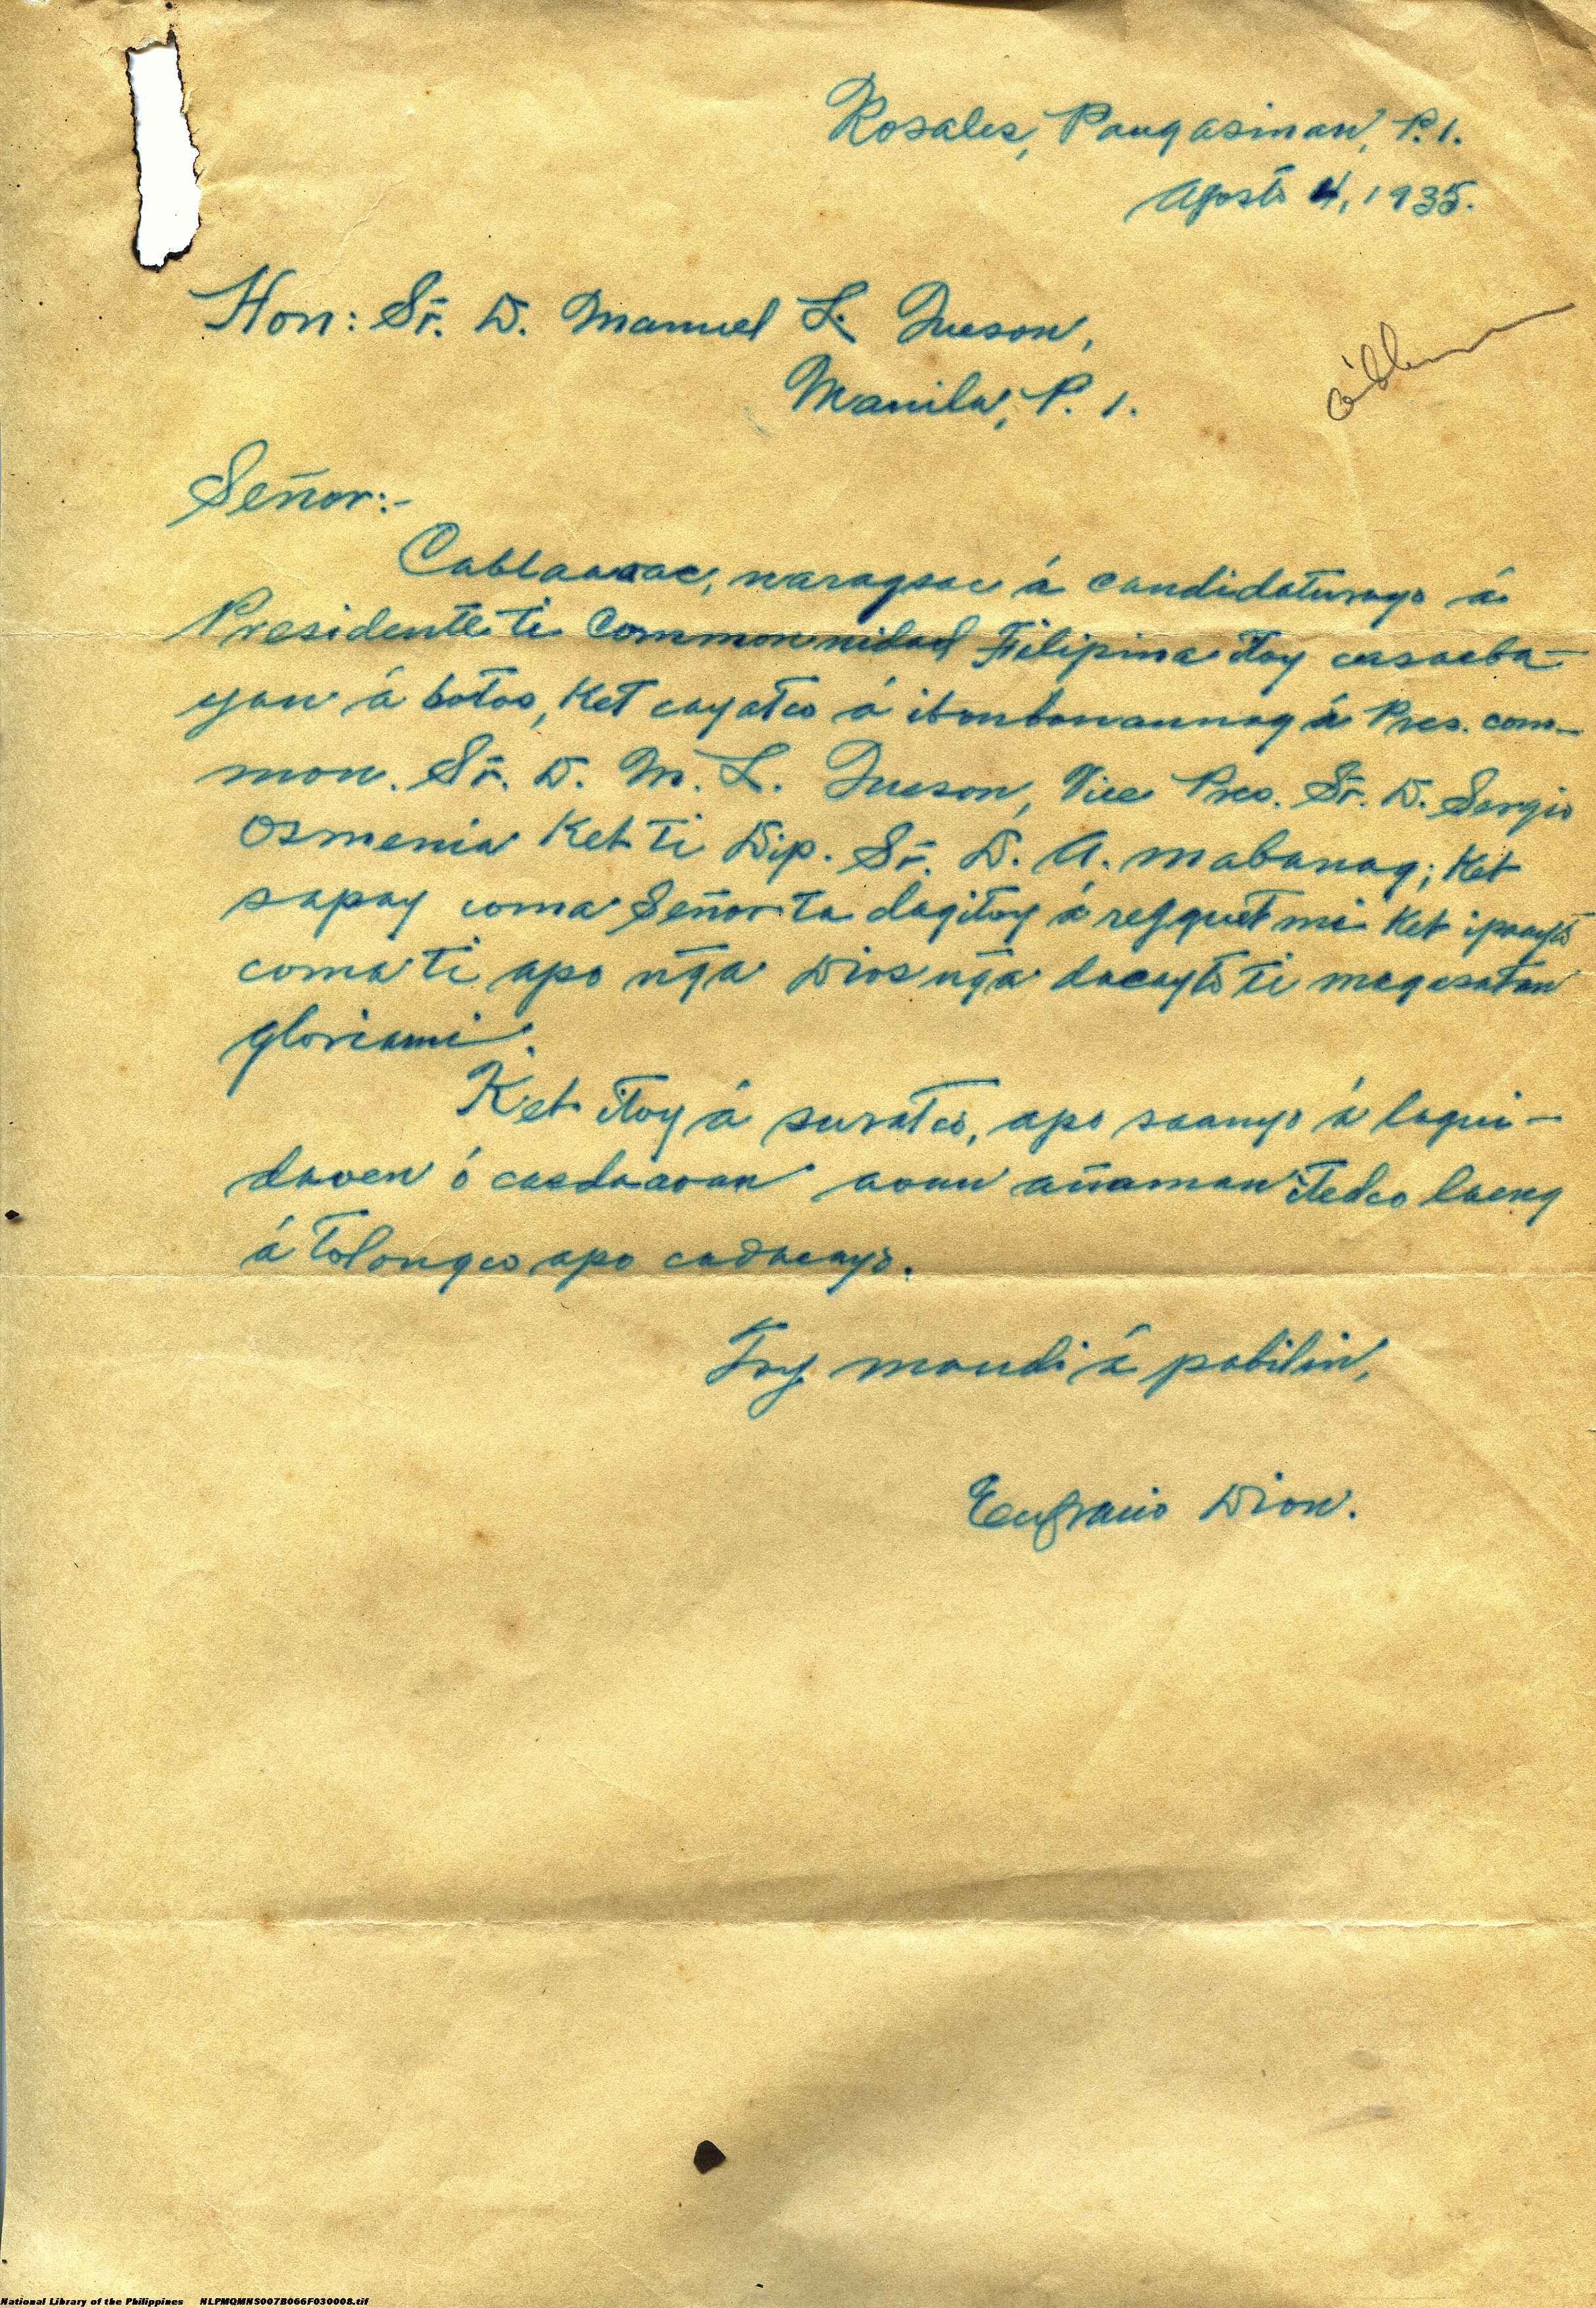 Rosales, Pangasinan, P.I.
Agosto 4, 1935.
Hon: Sr. D. Manuel L. Queson,
Manila, P. I.
Señor:-
Cablaaoac, naragsac á candidaturayo á
Presidente ti Commonnidad Filipina itoy casaeba-
yan á botos, Ket cayatco á ibonbonannag á Pres. com-
mon. Sr. D. M. L. Queson, Vice Pres. Sr. D. Sergio
Osmenia Ket ti Dip. Sr. D. A. mabanag; Ket
sapay coma Señor ta dagitoy á regguet mi Ket ipaayto
coma ti apo nga Dios nga dacayto ti magasatan
gloriami.
Ket itoy á suratco, apo saanyo á lagui-
daven ó casdaaoan aoan añaman itedco laeng
á tolongco apo cadacayo.
Toy maudi á pabilin,
Eufracio Dion.
National Library of the Philippines NLPMQMNS007B066F030008.tif